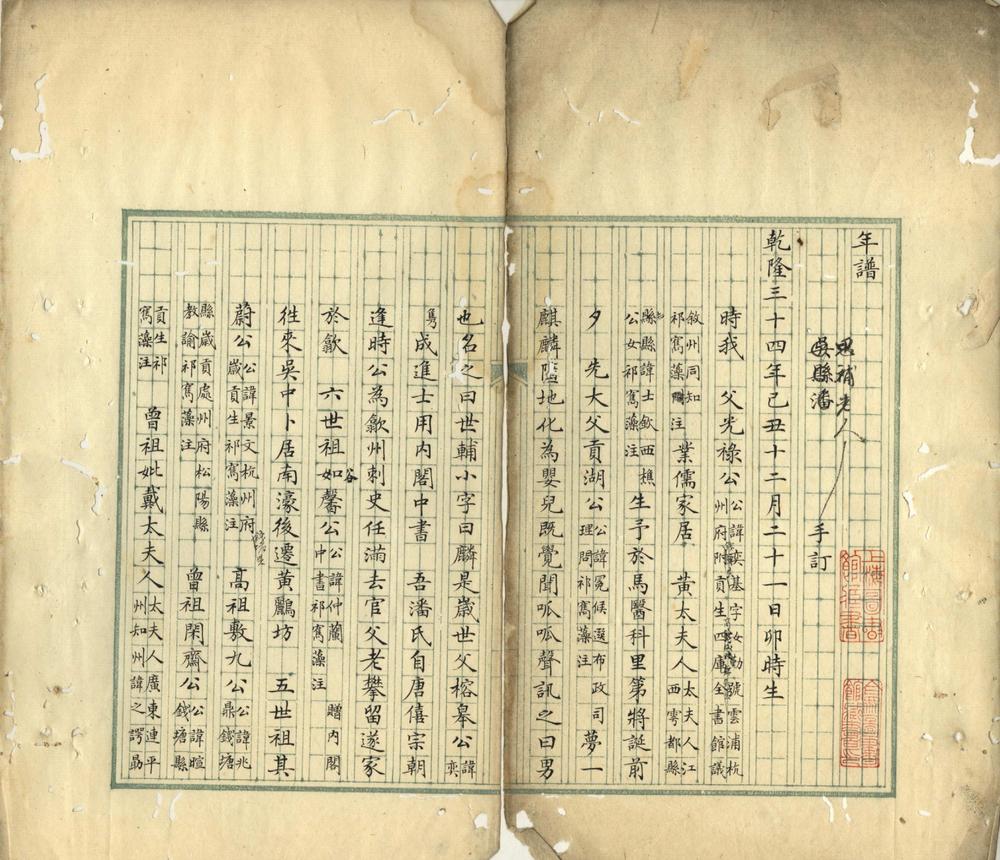 年譜
思補老人手訂
吳縣潘
乾隆三十四年己丑十二月二十一日卯時生
時我 父光祿公公諱奕基字汝勤號雲浦杭州府附貢生四庫全書館議
敘州同知祁寯藻注 業儒家居 黃太夫人太夫人江西雩都縣
知縣縣諱士欽西樵公女祁寯藻注生予於馬醫科里第將誕前
夕 先大父貢湖公公諱冕候選布政司理問祁寯藻注夢一
麒麟墮地化為嬰兒既覺聞呱呱聲訊之曰男
也名之曰世輔小字曰麟是歲世父榕皋公諱奕
雋成進士用內閣中書 吾潘氏自唐僖宗朝
逢時公為歙州刺史任滿去官父老攀留遂家
於歙 六世祖筠友馨公公諱仲蘭中書祁寯藻注 贈內閣
徃來吳中卜居南濠後遷黃鸝坊 五世祖其
蔚公公諱景文杭州府歲貢生祁寯藻注 高祖敷九公公諱兆鼎錢塘
縣歲貢處州府松陽縣教諭祁寯藻注 曾祖閑齋公公諱暄錢塘縣
貢生祁寯藻注 曾祖妣戴太夫人太夫人廣東連平州知州諱之諤勗
上海圖書館藏書